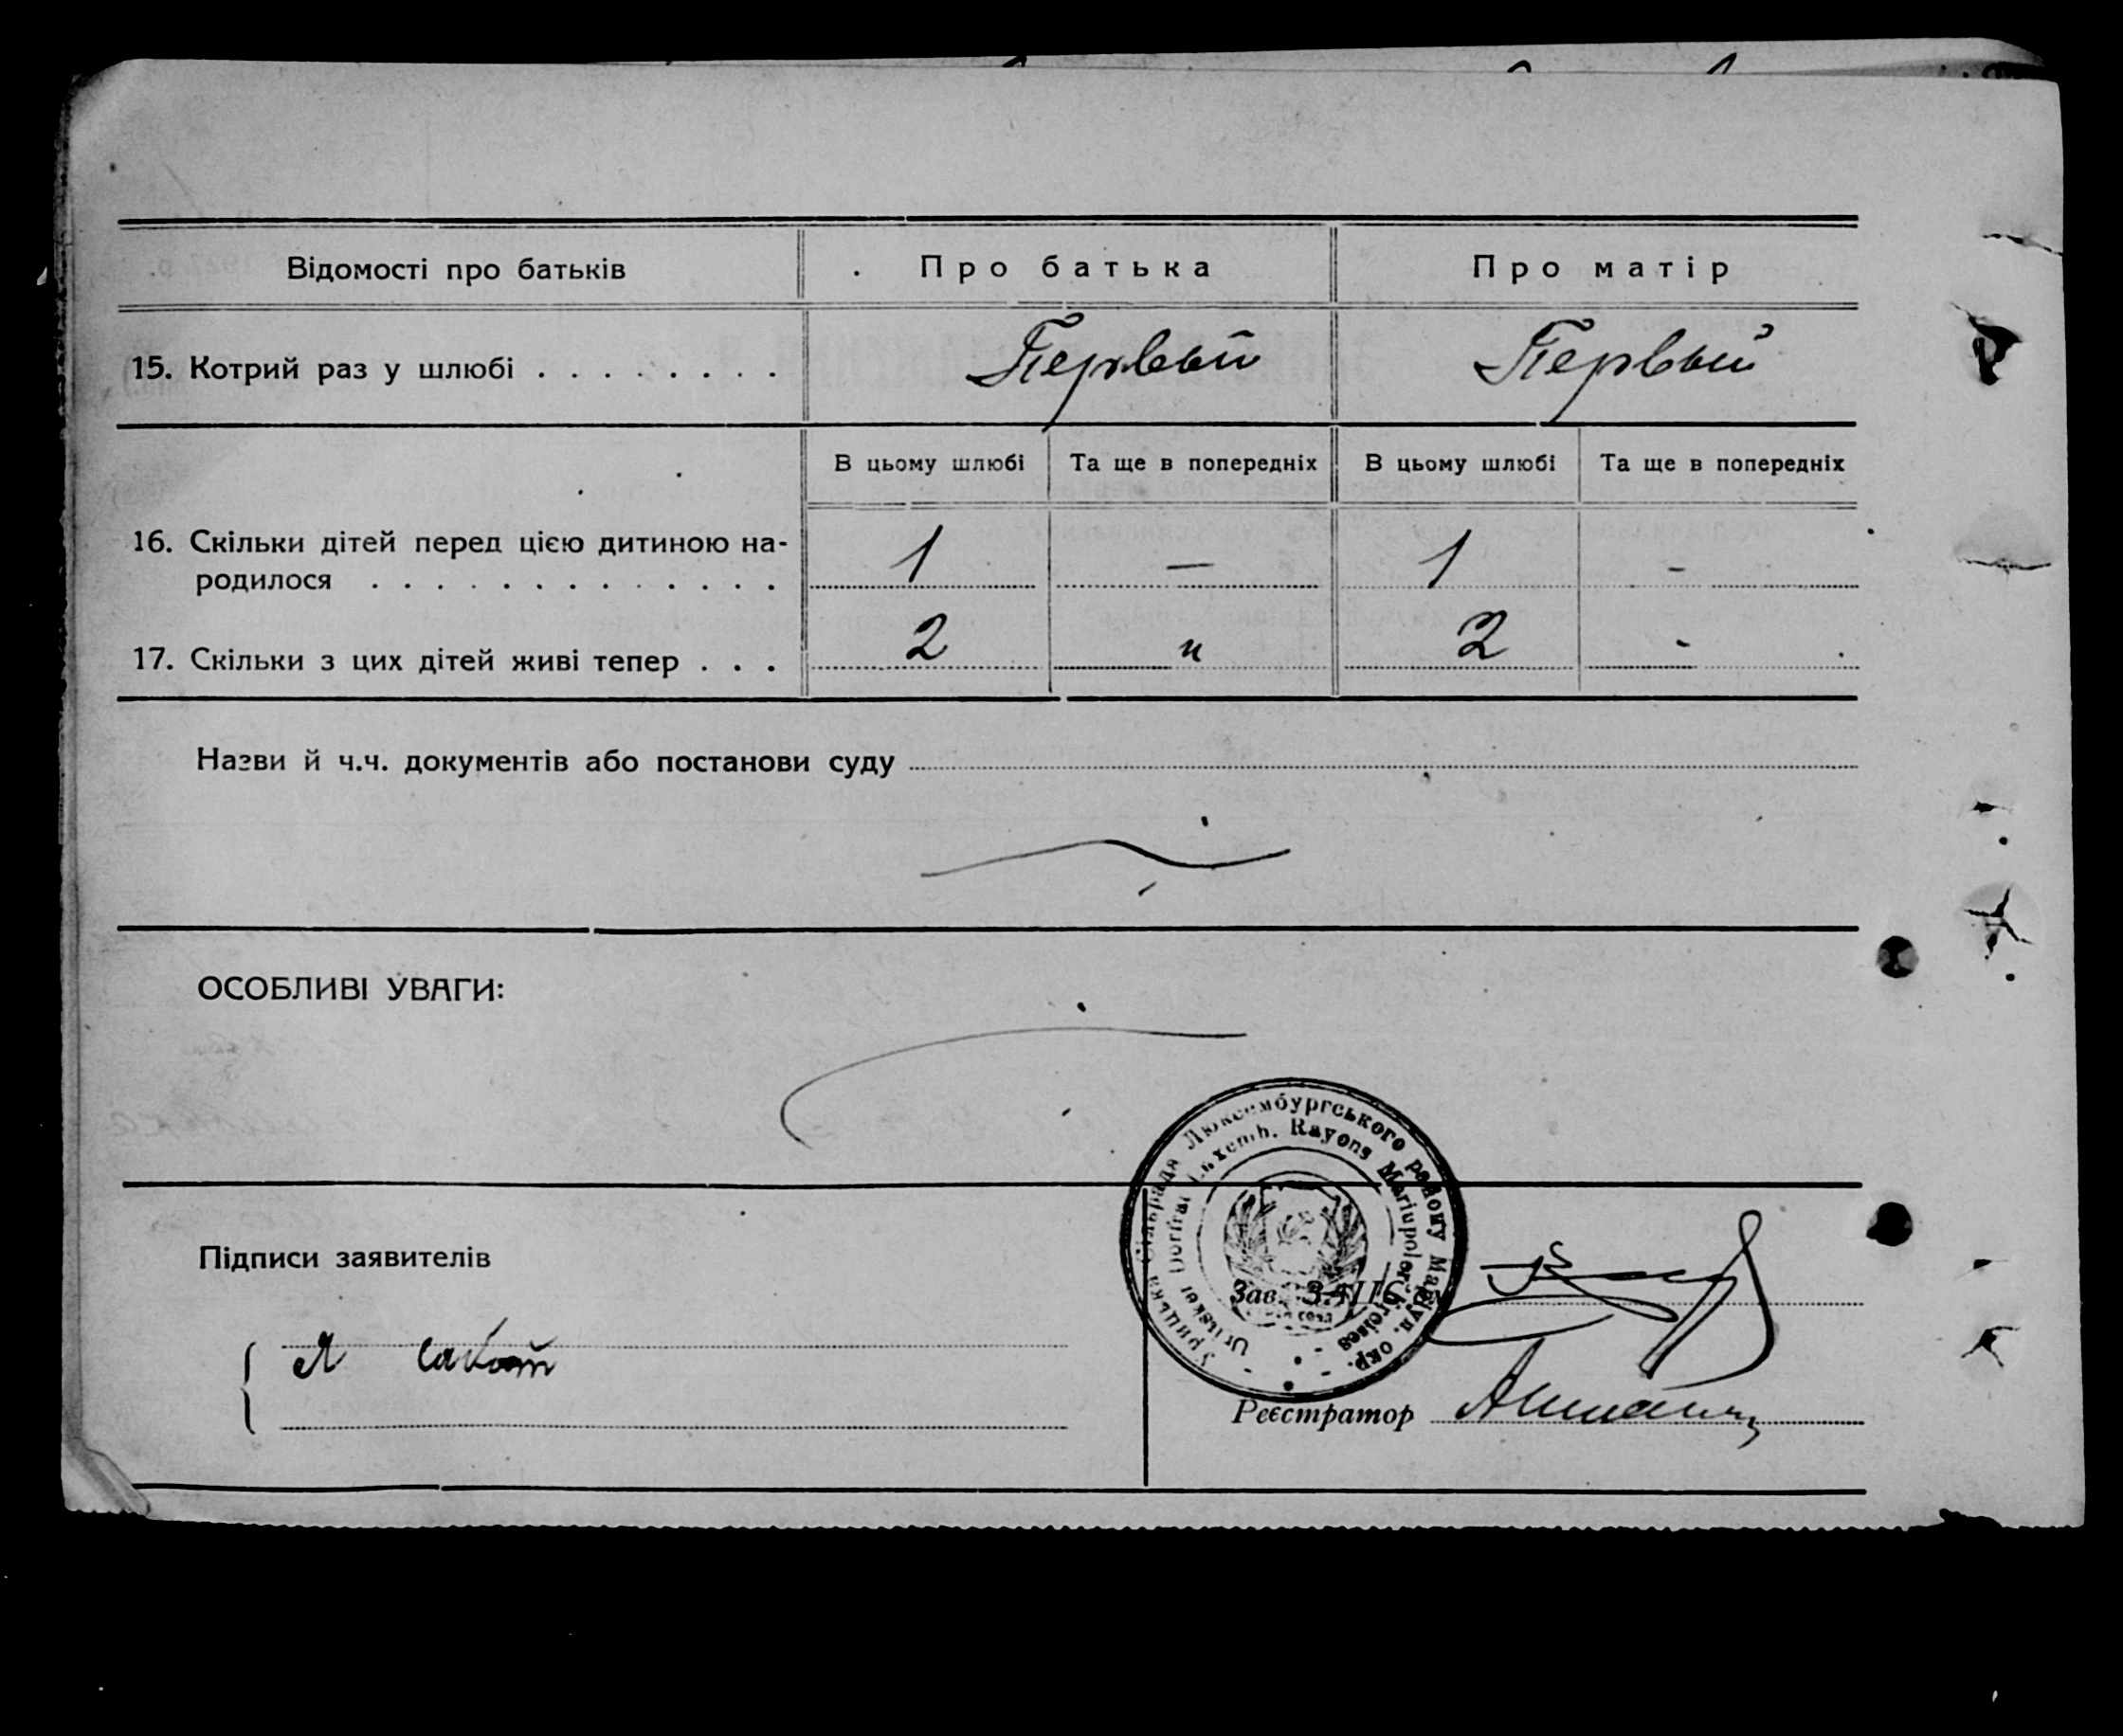 Відомості про батьків Про батька Про матір
15. Котрий раз у шлюбі . . . . . . . . Первый Первый
В цьому шлюбі Та ще в попередніх В цьому шлюбі Та ще в попередніх
16. Скільки дітей перед цією дитиною на-
родилося . . . . . . . . . . . . . 1 — 1 -
17. Скільки з цих дітей живі тепер . . . 2 " 2 -
Назви й ч.ч. документів або постанови суду
ОСОБЛИВІ УВАГИ:
Урицька Сільрада Люксембургського району Маріуп. окр.
Uritsker Dorfrat Luxemb. Rayons Mariupoler Kreises
Підписи заявителів
Зав. ЗАГС'ом
Я
Реєстратор